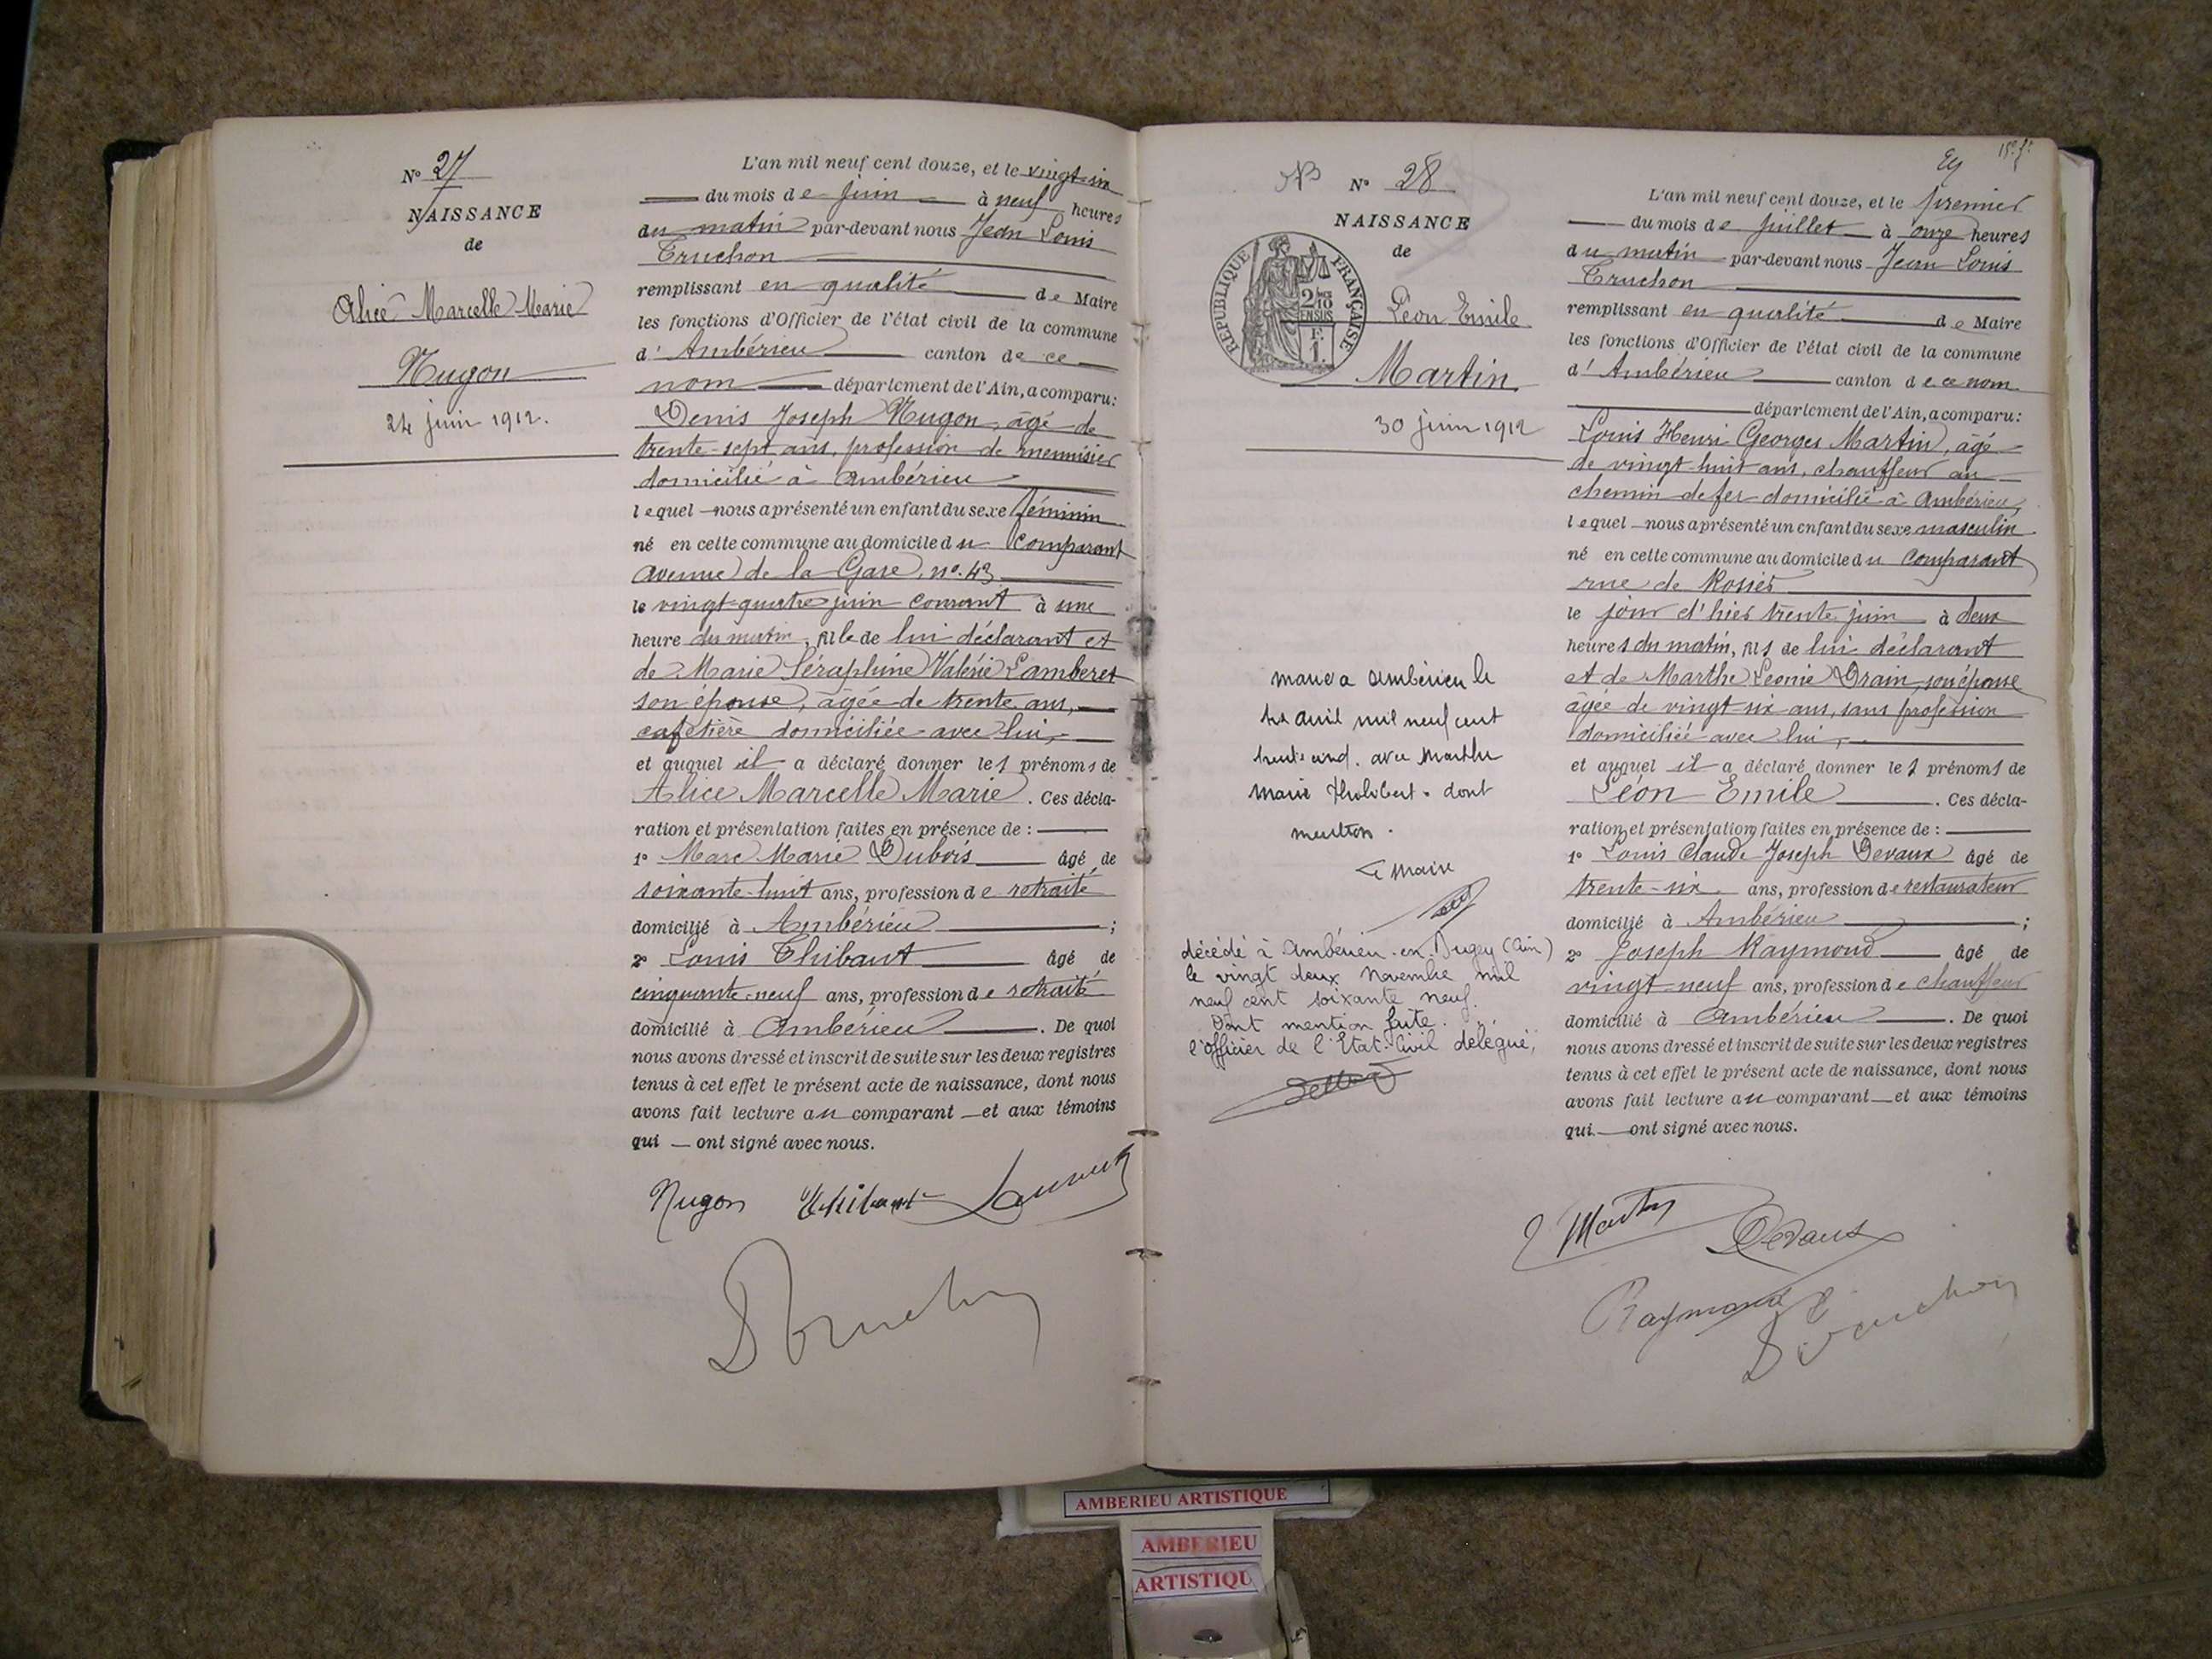 N° 27
NAISSANCE
de
Alice Marcelle Marie
Nugon
24 juin 1912.
L'an mil neuf cent douze, et le vingt-six
du mois de juin à neuf heures
du matin par-devant nous Jean Louis
Truchon
remplissant en qualité de Maire
les fonctions d'Officier de l'état civil de la commune
d'Ambérieu canton de ce
nom département de l'Ain, a comparu:
Denis Joseph Nugon, âgé de
trente-sept ans, profession de menuisier
domicilié à Ambérieu
lequel nous a présenté un enfant du sexe féminin
né en cette commune au domicile du comparant
Avenue de la Gare, n°. 43
le vingt-quatre juin courant à une
heure du matin, fille de lui déclarant et
de Marie Séraphine Valérie Lamberet
son épouse, âgée de trente ans,
cafetière domiciliée avec lui,
et auquel il a déclaré donner les prénoms de
Alice Marcelle Marie. Ces décla-
ration et présentation faites en présence de :
1° Marc Marie Dubois âgé de
soixante-huit ans, profession de retraité
domicilié à Ambérieu ;
2° Louis Thibaut âgé de
cinquante-neuf ans, profession de retraité
domicilié à Ambérieu. De quoi
nous avons dressé et inscrit de suite sur les deux registres
tenus à cet effet le présent acte de naissance, dont nous
avons fait lecture au comparant et aux témoins
qui ont signé avec nous.
Nugon Thibaut
Truchon
N° 28
NAISSANCE
de
RÉPUBLIQUE FRANÇAISE
2/10 EN SUS
F. 1.
Léon Emile
Martin
30 juin 1912
marié à Ambérieu le
avril mil neuf cent
avec Marthe
Marie dont
mention.
Le Maire
décédé à Ambérieu-en-Bugey (Ain)
le vingt deux novembre mil
neuf cent soixante neuf.
Dont mention faite.
l'officier de l'Etat-Civil délégué,
15e f.
L'an mil neuf cent douze, et le premier
du mois de juillet à onze heures
du matin par-devant nous Jean Louis
Truchon
remplissant en qualité de Maire
les fonctions d'Officier de l'état civil de la commune
d'Ambérieu canton de ce nom
département de l'Ain, a comparu:
Louis Henri Georges Martin, âgé
de vingt-huit ans, chauffeur au
chemin de fer domicilié à Ambérieu,
lequel nous a présenté un enfant du sexe masculin
né en cette commune au domicile du comparant
rue de
le jour d'hier trente juin à deux
heures du matin, fils de lui déclarant
et de Marthe Leonie Drain, son épouse
âgée de vingt-six ans, sans profession
domiciliée avec lui,
et auquel il a déclaré donner les prénoms de
Léon Emile. Ces décla-
ration et présentation faites en présence de :
1° Louis Claude Joseph Devaux âgé de
trente-six ans, profession de restaurateur
domicilié à Ambérieu ;
2° Joseph Raymond âgé de
vingt-neuf ans, profession de chauffeur
domicilié à Ambérieu. De quoi
nous avons dressé et inscrit de suite sur les deux registres
tenus à cet effet le présent acte de naissance, dont nous
avons fait lecture au comparant et aux témoins
qui ont signé avec nous.
Martin
Devaux
Raymond
Truchon
AMBERIEU ARTISTIQUE
AMBERIEU
ARTISTIQU